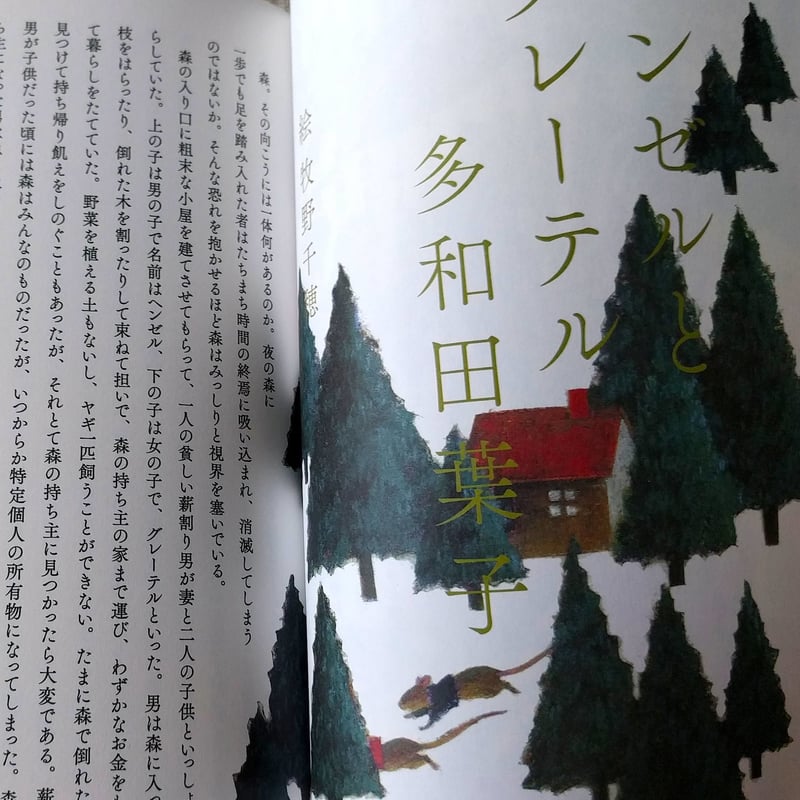 ンゼルと
グレーテル
多和田葉子
絵 牧野千穂
森。その向こうには一体何があるのか。夜の森に
一歩でも足を踏み入れた者はたちまち時間の終焉に吸い込まれ、消滅してしまう
のではないか。そんな恐れを抱かせるほど森はみっしりと視界を塞いでいる。
森の入り口に粗末な小屋を建てさせてもらって、一人の貧しい薪割り男が妻と二人の子供といっしょ
らしていた。上の子は男の子で名前はヘンゼル、下の子は女の子で、グレーテルといった。男は森に入っ
枝をはらったり、倒れた木を割ったりして束ねて担いで、森の持ち主の家まで運び、わずかなお金をも
て暮らしをたてていた。野菜を植える土もないし、ヤギ一匹飼うことができない。たまに森で倒れた
見つけて持ち帰り飢えをしのぐこともあったが、それとて森の持ち主に見つかったら大変である。薪
男が子供だった頃には森はみんなのものだったが、いつからか特定個人の所有物になってしまった。森